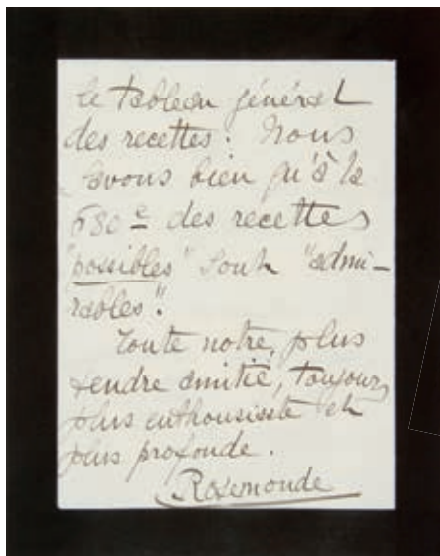 le tableau général
des recettes. Nous
savons bien qu'à la
680e des recettes
"possibles" sont "admi-
rables".
Toute notre plus
tendre amitié, toujours
plus enthousiaste et
plus profonde.
Rosemonde